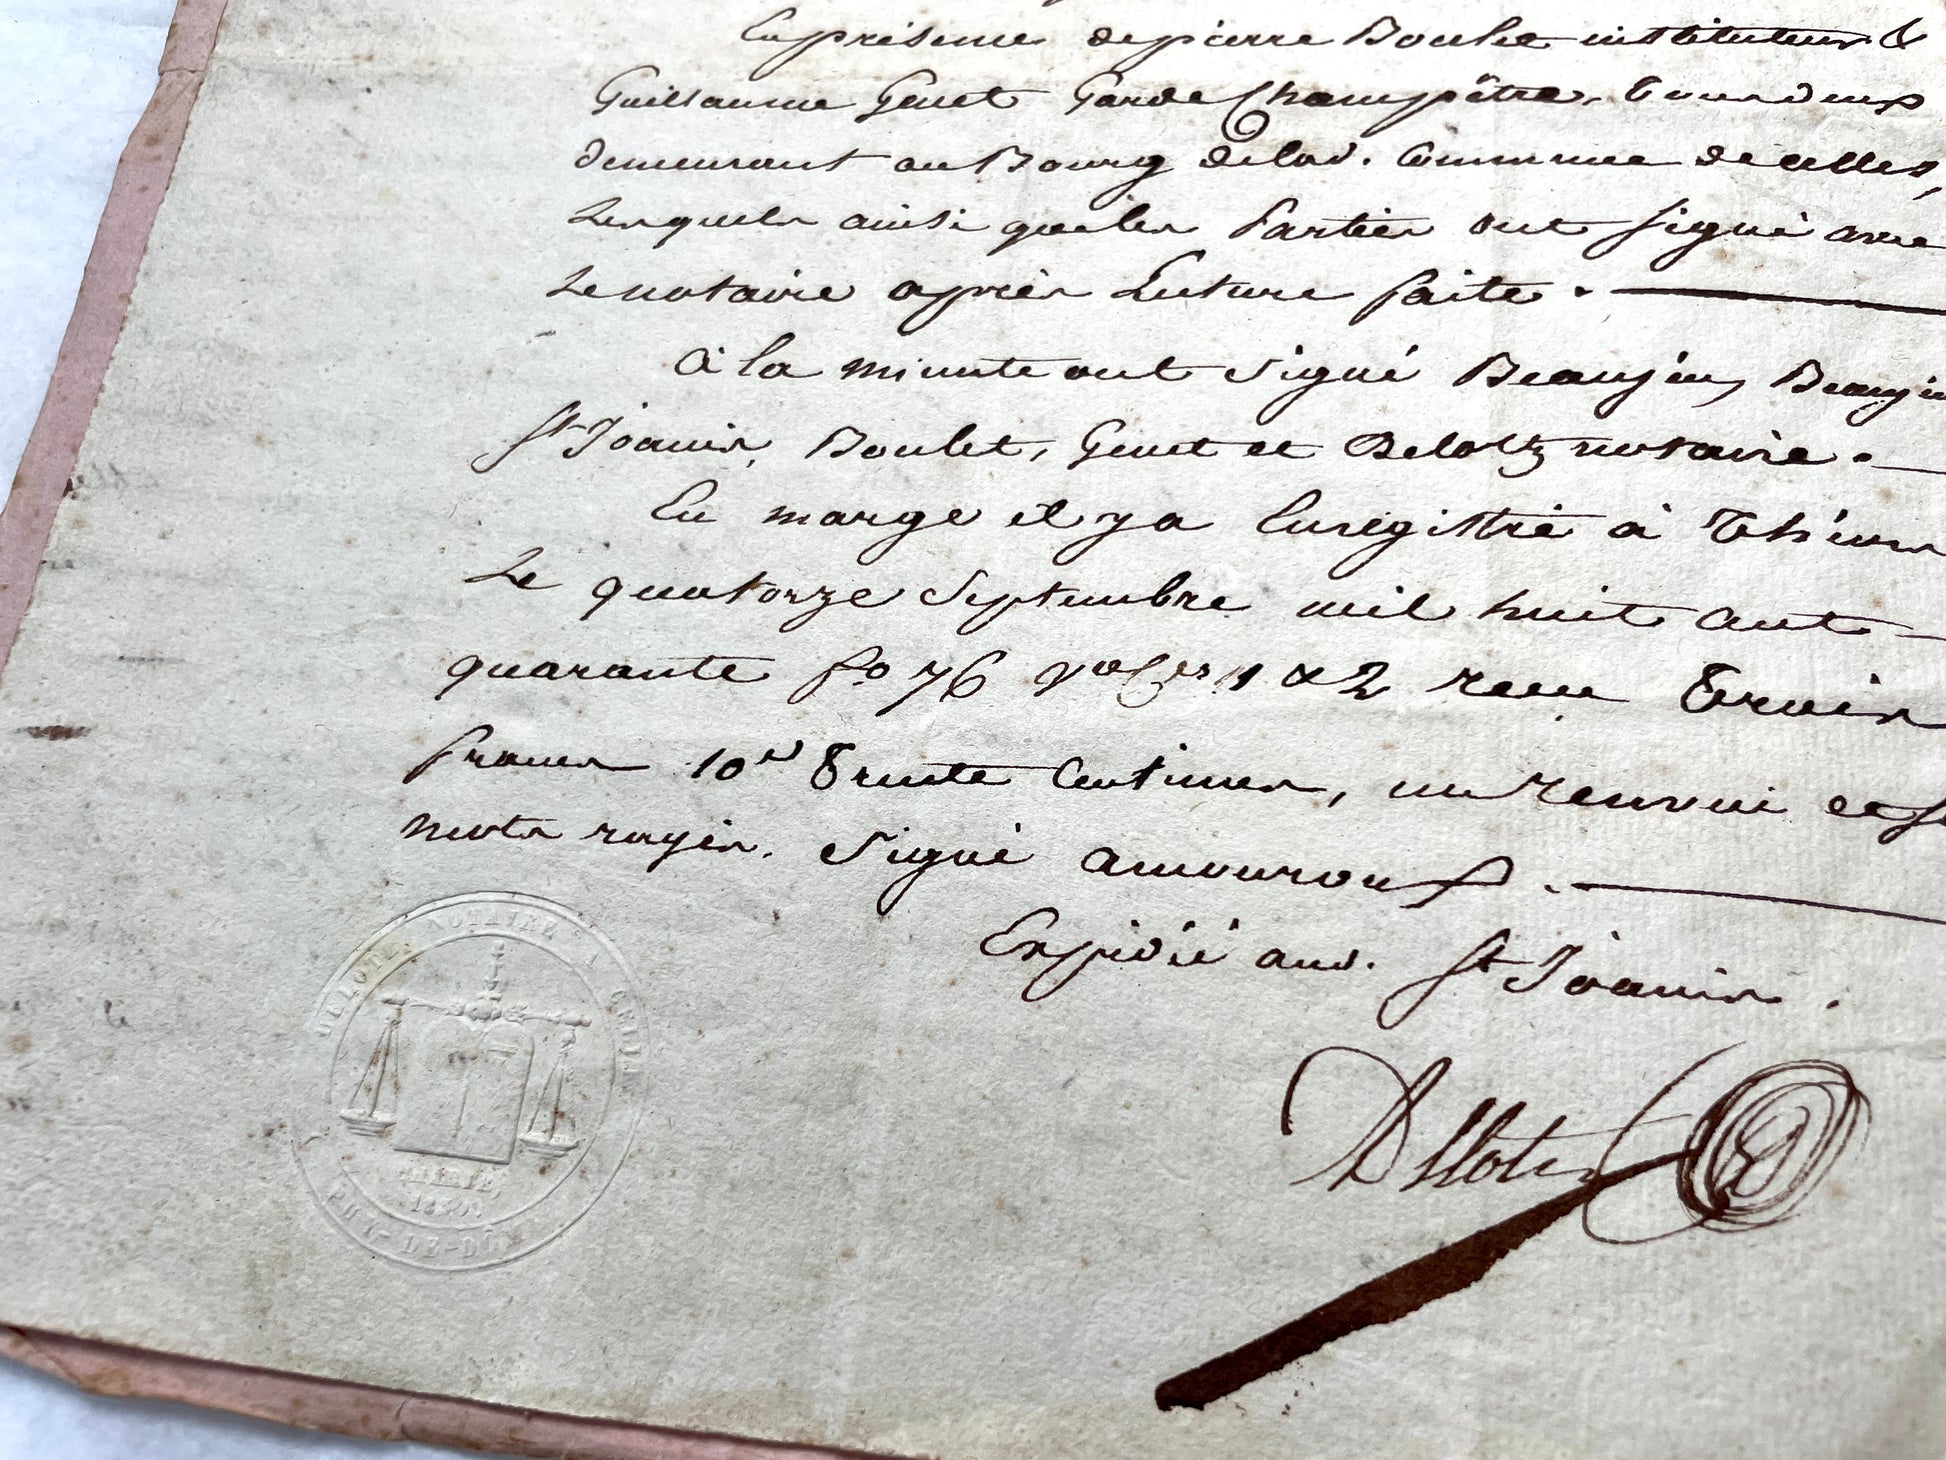 En présence de pierre Boulet instituteur &
Guillaume Genet Garde Champêtre, tous deux
demeurant au Bourg de lad. Commune de celles,
Lesquels ainsi que les Parties ont signé avec
Le notaire après Lecture faite.
à la minute ont signé Beaujeu, Beaujeu
St Joanis, Boulet, Genet et Delotz notaire.
En marge il y a Enregistré à Thiers
Le quatorze Septembre mil huit cent
quarante fo 76 vo Ces 1 & 2 reçu Trois
francs 10e Trente Centimes, un renvoi et
mots rayés. Signé amouroux.
Expédié aud. St Joanis.
NOTAIRE A CELLES
1830
PUY-DE-DÔME